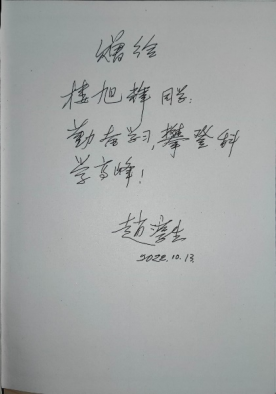 赠给
楼旭辉同学:
勤奋学习,攀登科
学高峰!
赵淳生
2022.10.13